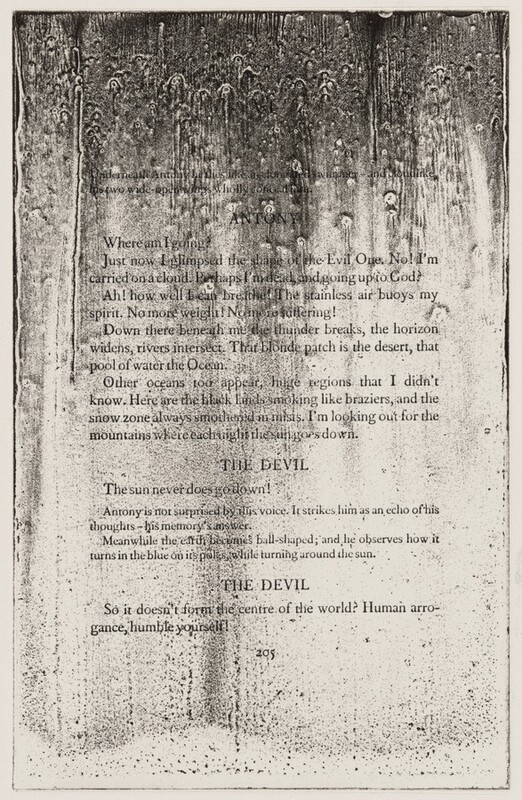 VI
Underneath Antony he flies like a swimmer - and cloudlike,
his two wide-open wings wholly conceal him.
ANTONY
Where am I going?
Just now I glimpsed the shape of the Evil One. No! I'm
carried on a cloud. Perhaps I'm dead, and going up to God?
Ah! how well I can breathe! The stainless air buoys my
spirit. No more weight! No more suffering!
Down there beneath me the thunder breaks, the horizon
widens, rivers intersect. That blonde patch is the desert, that
pool of water the Ocean.
Other oceans too appear, huge regions that I didn't
know. Here are the black lands smoking like braziers, and the
snow zone always smothered in mists. I'm looking out for the
mountains where each night the sun goes down.
THE DEVIL
The sun never does go down!
Antony is not surprised by this voice. It strikes him as an echo of his
thoughts – his memory's answer.
Meanwhile the earth becomes ball-shaped; and he observes how it
turns in the blue on its poles, while turning around the sun.
THE DEVIL
So it doesn't form the centre of the world? Human arro-
gance, humble yourself!
205